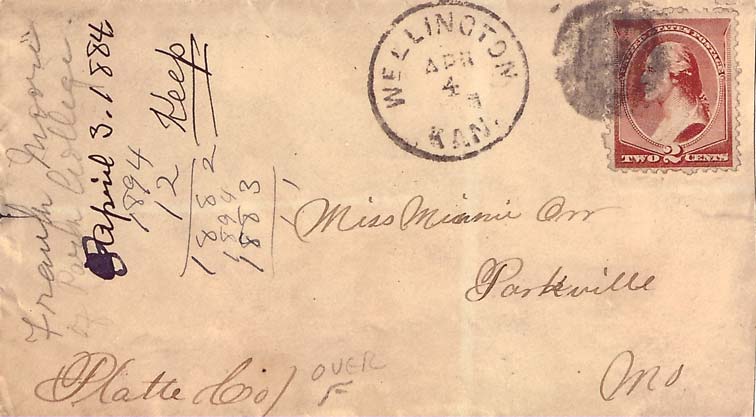 Frank Moore
of Park College.
April 3. 1884
1894
12
Keep
1882
1894
1883
WELLINGTON
APR
4
KAN.
UNITED STATES POSTAGE
TWO 2 CENTS
Miss Minnie Orr
Parkville
Mo
Platte Co
OVER